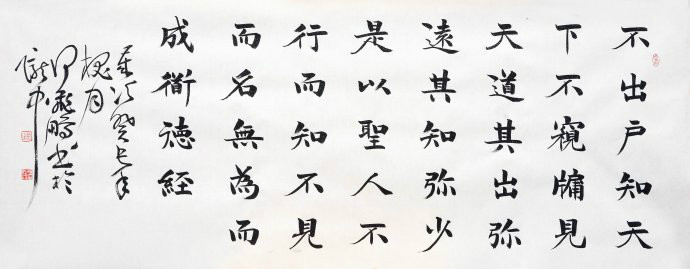 不出户知天
下不窺牖見
天道其出弥
遠其知弥少
是以聖人不
行而知不見
而名無為而
成衜徳経
次癸巳年
槐月
鵬书於